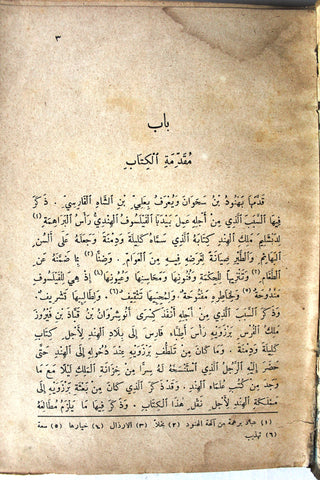 ٣
باب
مُقَدِّمَةِ ٱلْكِتَابِ
قَدَّمَهَا بَهْنُودُ بْنُ سَحْوَانَ وَيُعْرَفُ بِعَلِيِّ بْنِ الشَّاهِ الْفَارِسِيِّ . ذَكَرَ
فِيهَا السَّبَبَ الَّذِي مِنْ أَجْلِهِ عَمِلَ بَيْدَبَا الْفَيْلَسُوفُ الْهِنْدِيُّ رَأْسُ الْبَرَاهِمَةِ (١)
لِدَبْشَلِيمَ مَلِكِ الْهِنْدِ كِتَابَهُ الَّذِي سَمَّاهُ كَلِيلَةَ وَدِمْنَةَ وَجَعَلَهُ عَلَى أَلْسُنِ
الْبَهَائِمِ وَالطَّيْرِ صِيَانَةً لِغَرَضِهِ فِيهِ مِنَ الْعَوَامِّ . وَضَنًّا (٢) بِمَا ضَمَّنَهُ عَنِ
الطَّغَامِ (٣) وَتَنْزِيهًا لِلْحِكْمَةِ وَفُنُونِهَا وَمَحَاسِنِهَا وَعُيُونِهَا (٤) إِذْ هِيَ لِلْفَيْلَسُوفِ
مَنْدُوحَةٌ (٥) وَلِخَاطِرِهِ مَفْتُوحَةٌ . وَلِمُحِبِّيهَا تَثْقِيفٌ (٦) . وَلِطَالِبِيهَا تَشْرِيفٌ .
وَذَكَرَ السَّبَبَ الَّذِي مِنْ أَجْلِهِ أَنْفَذَ كِسْرَى أَنُوشِرْوَانُ بْنُ قُبَاذَ بْنِ فَيْرُوزَ
مَلِكُ الْفُرْسِ بَرْزَوَيْهِ رَأْسَ أَطِبَّاءِ فَارِسَ إِلَى بِلَادِ الْهِنْدِ لِأَجْلِ كِتَابِ
كَلِيلَةَ وَدِمْنَةَ . وَمَا كَانَ مِنْ تَلَطُّفِ بَرْزَوَيْهِ عِنْدَ دُخُولِهِ إِلَى الْهِنْدِ حَتَّى
حَضَرَ إِلَيْهِ الرَّجُلُ الَّذِي اسْتَنْسَخَهُ لَهُ سِرًّا مِنْ خِزَانَةِ الْمَلِكِ لَيْلًا مَعَ مَا
وَجَدَ مِنْ كُتُبِ عُلَمَاءِ الْهِنْدِ . وَقَدْ ذَكَرَ الَّذِي كَانَ مِنْ بَعْثَةِ بَرْزَوَيْهِ إِلَى
مَمْلَكَةِ الْهِنْدِ لِأَجْلِ نَقْلِ هٰذَا الْكِتَابِ . وَذَكَرَ فِيهَا مَا يَلْزَمُ مُطَالِعَهُ
(١) عباد برهمة من آلهة الهنود (٢) بخلاً (٣) الارذال (٤) خيارها (٥) سعة
(٦) تهذيب